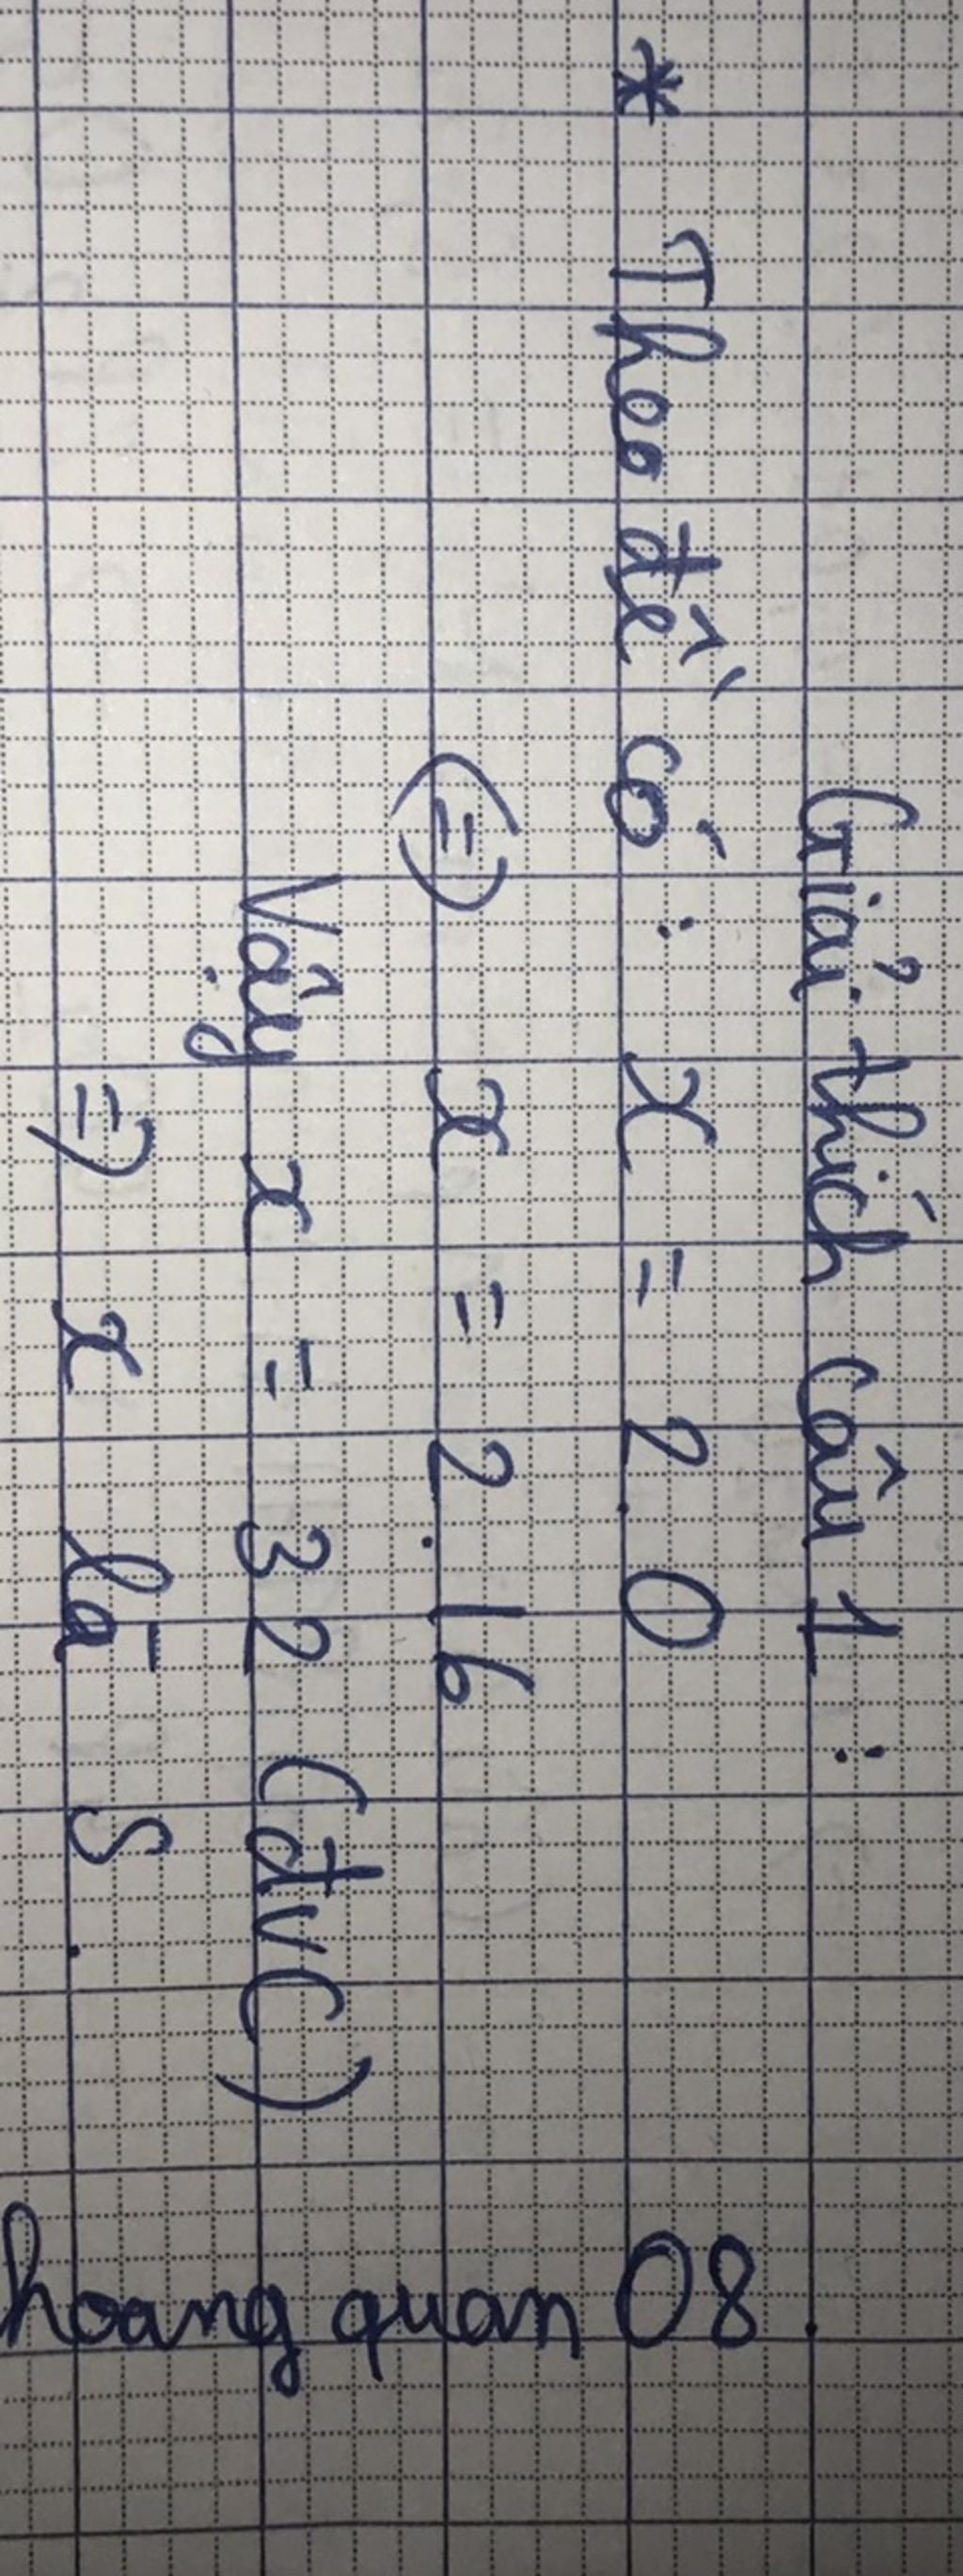 Giải thích câu 1 :
* Theo đề có : x = 2.O
(=) x = 2.16
Vậy x = 32 (đvC)
=) x là S.
hoang quan 08.